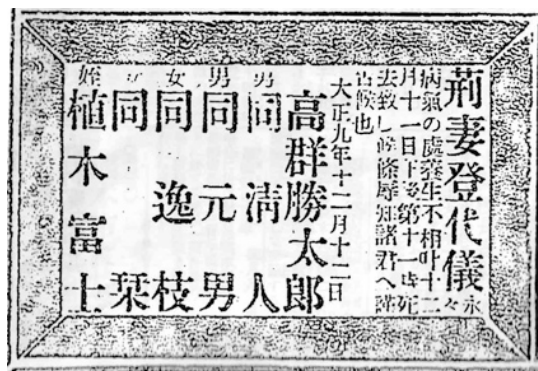 荊妻登代儀永々
病氣の處養生不相叶十二
月十一日午後第十一時死
去致し候條辱知諸君へ謹
告候也
大正九年十二月十二日
高群勝太郎
男同清人
男同元男
女同逸枝
〃同栞
姪植木富士